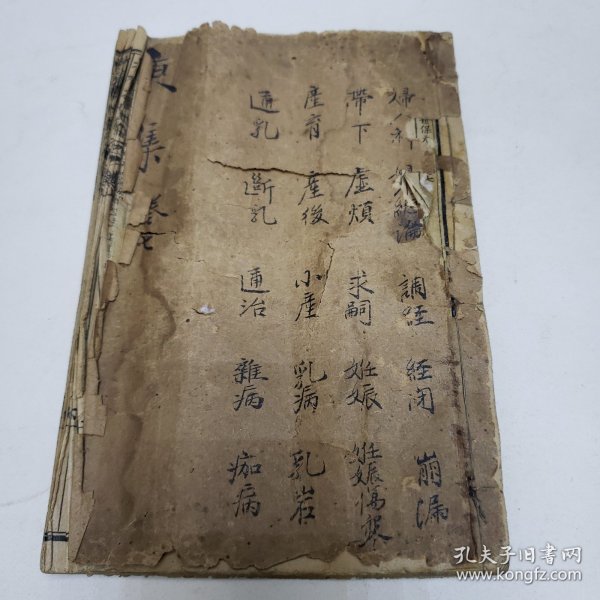 婦人科 調經 經闭 崩漏
帶下 虛煩 求嗣 妊娠 妊娠傷寒
產育 產後 小產 乳病 乳岩
通乳 斷乳 通治 雜病 痂病
貞集 卷七
孔夫子旧书网
www.kongfz.com